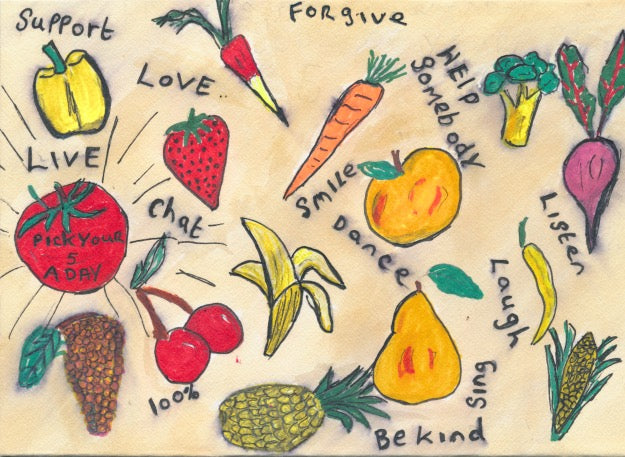 Support
FORGIVE
LOVE..
HELP
Somebody
LIVE
SMILE
Chat
DANCE
PICK YOUR
5
A DAY
Listen
Laugh
100%
Sing
Be kind